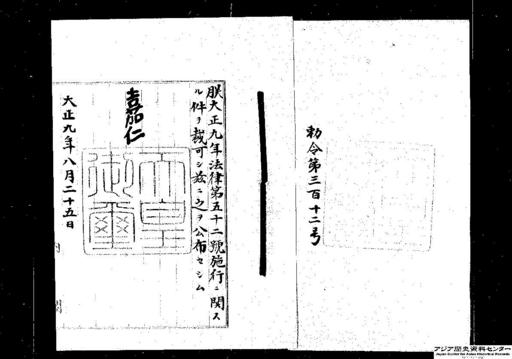 勅令第三百十二号
朕大正九年法律第五十二號施行ニ関ス
ル件ヲ裁可シ茲ニ之ヲ公布セシム
嘉仁
天皇
御璽
大正九年八月二十五日
内
アジア歴史資料センター
Japan Center for Asian Historical Records